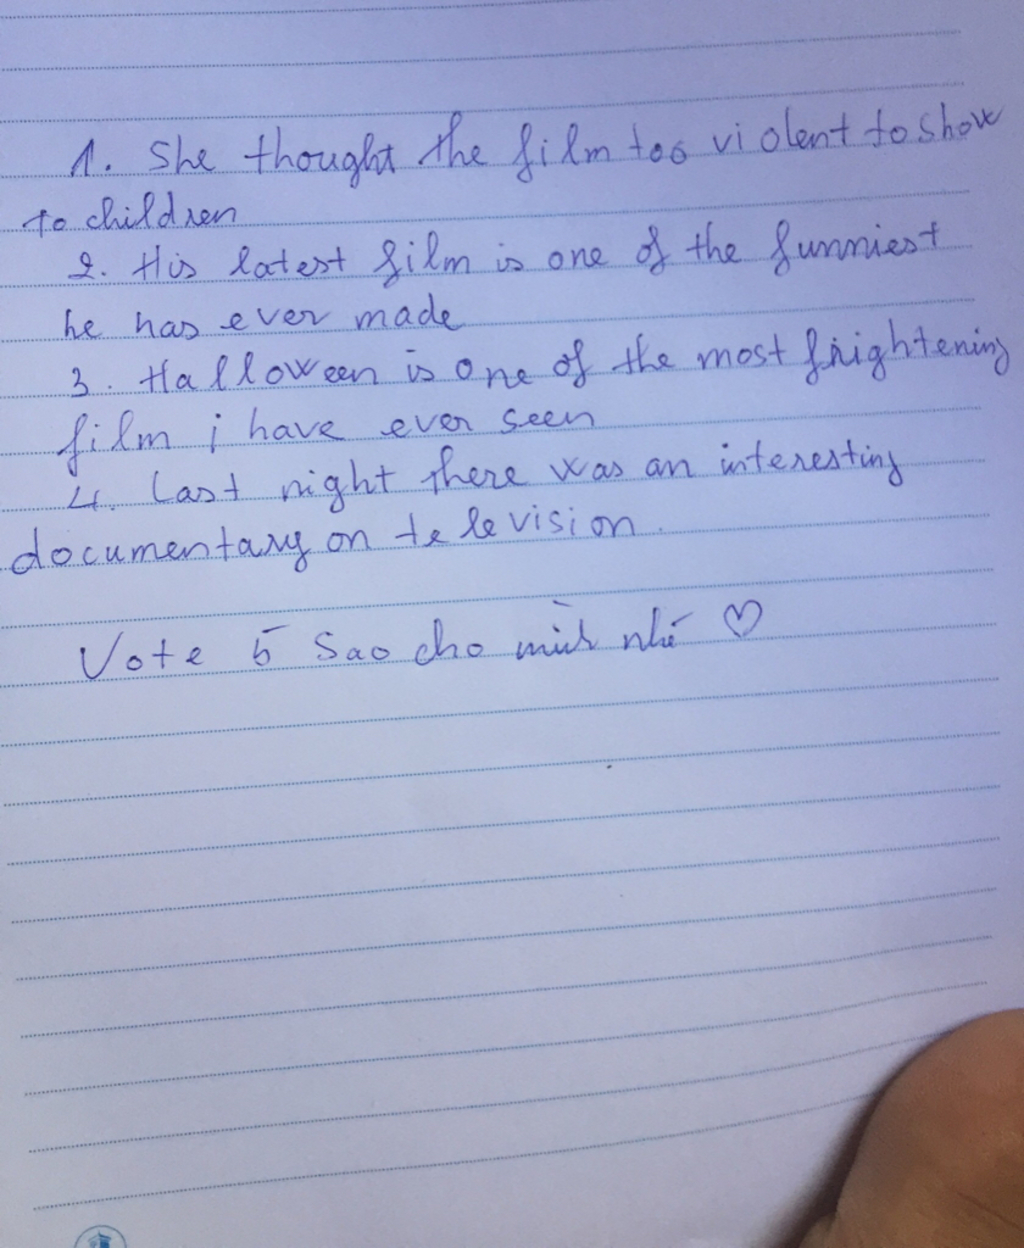 1. She thought the film too violent to show
to children
2. His latest film is one of the funniest
he has ever made
3. Halloween is one of the most frightening
film i have ever seen
4. Last night there was an interesting
documentary on television.
Vote 5 sao cho mình nhé ♡